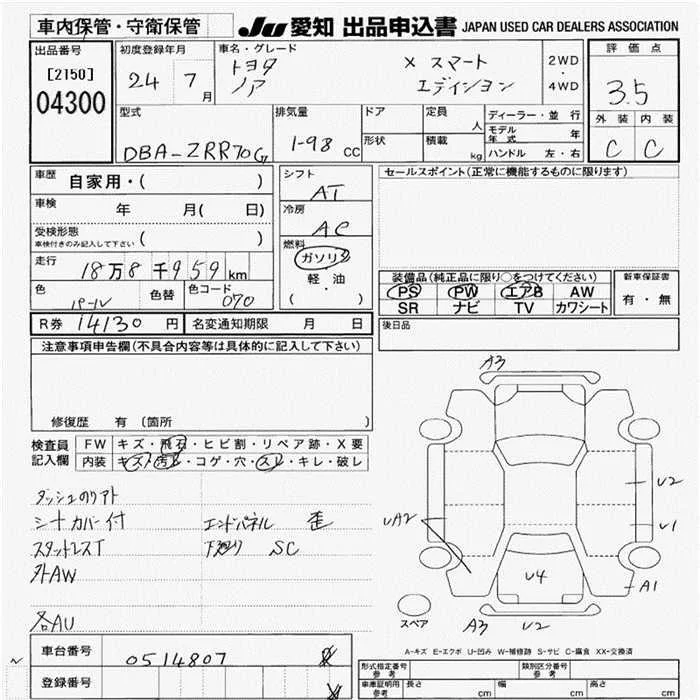 車内保管・守衛保管
JU 愛知 出品申込書 JAPAN USED CAR DEALERS ASSOCIATION
出品番号
[2150]
04300
初度登録年月
24 7月
車名・グレード
トヨタ X スマート
ノア エディション
2WD
・
4WD
評価点
3.5
外装 内装
C C
型式
DBA-ZRR70G
排気量
1-98 CC
ドア
形状
定員 人
積載 kg
ディーラー・並行
モデル年式 年
ハンドル 左・右
車歴 自家用・( )
車検 年 月( 日)
受検形態
車検付きのみ記入して下さい ( )
走行 18万8千959km
色 パール 色替 色コード 070
シフト AT
冷房 AC
燃料
ガソリン
軽・油
( ・ )
R券 14130 円 名変通知期限 月 日
セールスポイント(正常に機能するものに限ります)
装備品(純正品に限り○をつけてください)
PS PW エアB AW
SR ナビ TV カワシート
新車保証書
有・無
後日品
注意事項申告欄(不具合内容等は具体的に記入して下さい)
修復歴 有 〔箇所 〕
検査員記入欄
FW キズ・飛石・ヒビ割・リペア跡・X要
内装 キズ・汚レ・コゲ・穴・スレ・キレ・破レ
ダッシュのリアト
シートカバー付 エンドパネル 歪
スタットレスT 下廻り SC
外AW
各AU
A3
UA2
U2
U1
U4
A1
A3 U2
スペア
A-キズ E-エクボ U-凹み W-補修跡 S-サビ C-腐食 XX-交換済
車台番号 0514807
登録番号
形式指定番号 参考
類別区分番号 参考
車庫証明用 参考 長さ cm 幅 cm 高さ cm